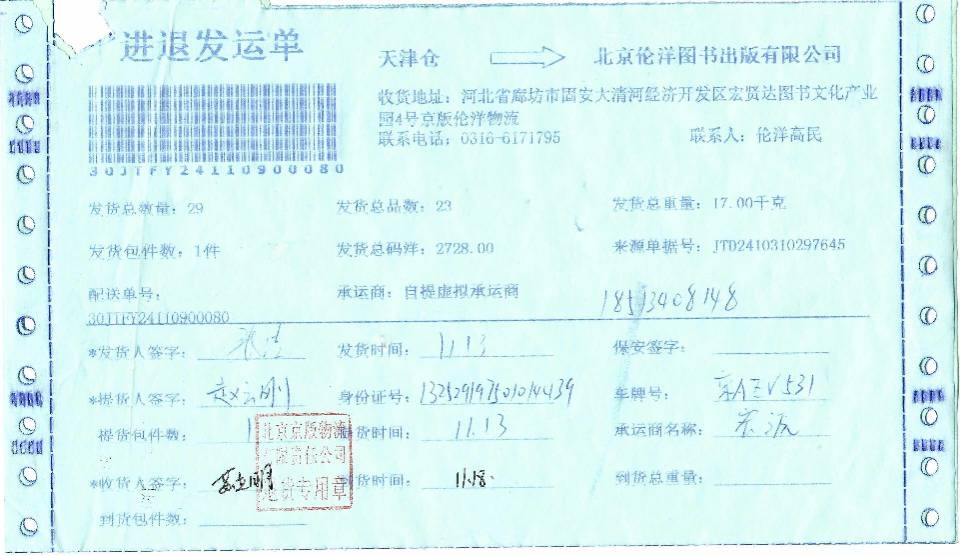 进退发运单
天津仓 北京伦洋图书出版有限公司
收货地址：河北省廊坊市固安大清河经济开发区宏贤达图书文化产业
园4号京版伦洋物流
联系电话：0316-6171795 联系人：伦洋高民
30JTFY24110900080
发货总数量：29 发货总品数：23 发货总重量：17.00千克
发货包件数：1件 发货总码洋：2728.00 来源单据号：JTD2410310297645
配送单号： 承运商：自提虚拟承运商 18513408148
30JTFY24110900080
*发货人签字： 发货时间：11.13 保安签字：
*提货人签字：赵云刚 身份证号：132529197501014439 车牌号：京AEV531
提货包件数：1 提货时间：11.13 承运商名称：京版
*收货人签字： 到货时间：11.18. 到货总重量：
到货包件数：
北京京版物流
有限责任公司
退货专用章